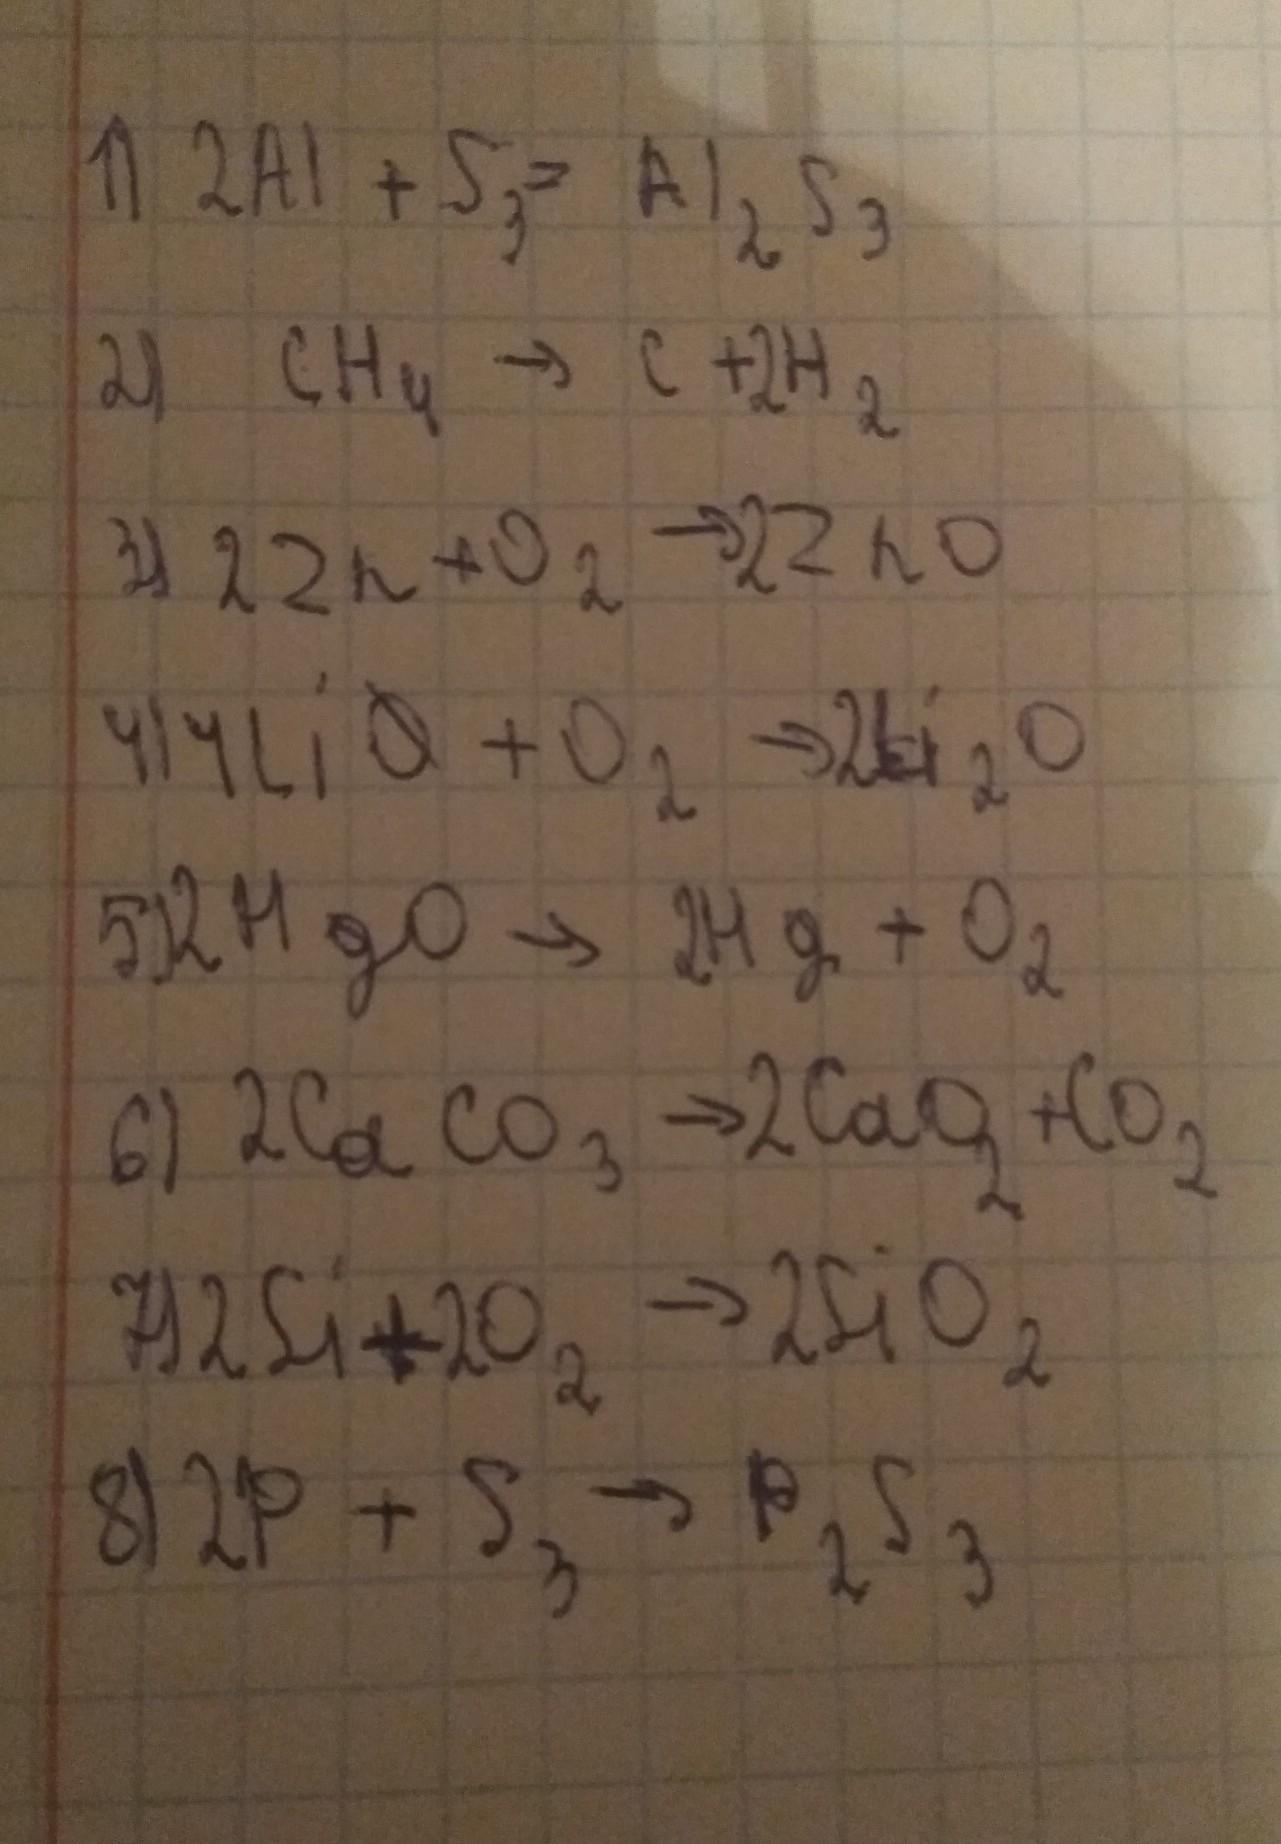 1) 2Al + S₃ = Al₂S₃
2) CH₄ → C + 2H₂
3) 2Zn + O₂ → 2ZnO
4) 4Li + O₂ → 2Li₂O
5) 2HgO → 2Hg + O₂
6) 2CaCO₃ → 2CaO₂ + CO₂
7) 2Si + 2O₂ → 2SiO₂
8) 2P + S₃ → P₂S₃